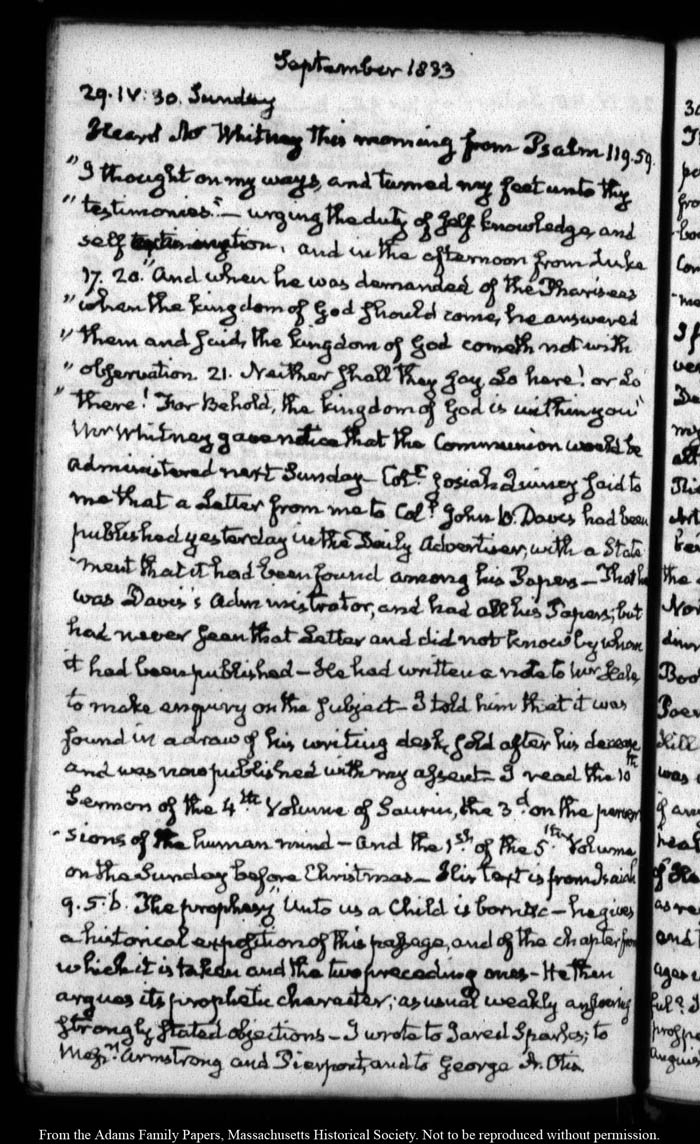 September 1833
29. IV:30. Sunday
Heard Mr Whitney this morning from Psalm 119.59.
"I thought on my ways, and turned my feet unto thy
"testimonies."— urging the duty of self knowledge, and
self examination, and in the afternoon from Luke
17. 20. "And when he was demanded of the Pharisees
"when the kingdom of God should come, he answered
"them and said, the kingdom of God cometh not with
"observation 21. Neither shall they say Lo here! or Lo
"there! For Behold, the kingdom of God is within you"
Mr Whitney gave notice that the Communion would be
administered next Sunday— Col.l Josiah Quincy said to
me that a Letter from me to Col.l John B. Davis had been
published yesterday in the Daily Advertiser, with a State
ment that it had been found among his Papers— That he
was Davis's Administrator, and had all his Papers; but
had never seen that Letter and did not know by whom
it had been published— He had written a note to Mr Hale
to make enquiry on the subject— I told him that it was
found in a draw of his writing desk, sold after his decease
and was now published with my assent— I read the 10th
Sermon of the 4th Volume of Saurin, the 3d on the
sions of the human mind— and the 1st of the 5th Volume
on the Sunday before Christmas— His text is from Isaiah
9. 5. 6. The prophesy "Unto us a Child is born &c— he gives
a historical exposition of this passage, and of the chapter from
which it is taken and the two preceding ones— He then
argues its prophetic character; as usual weakly answering
strongly stated objections— I wrote to Jared Sparks; to
Mess.rs Armstrong and Pierpont, and to George A. Otis.
From the Adams Family Papers, Massachusetts Historical Society. Not to be reproduced without permission.